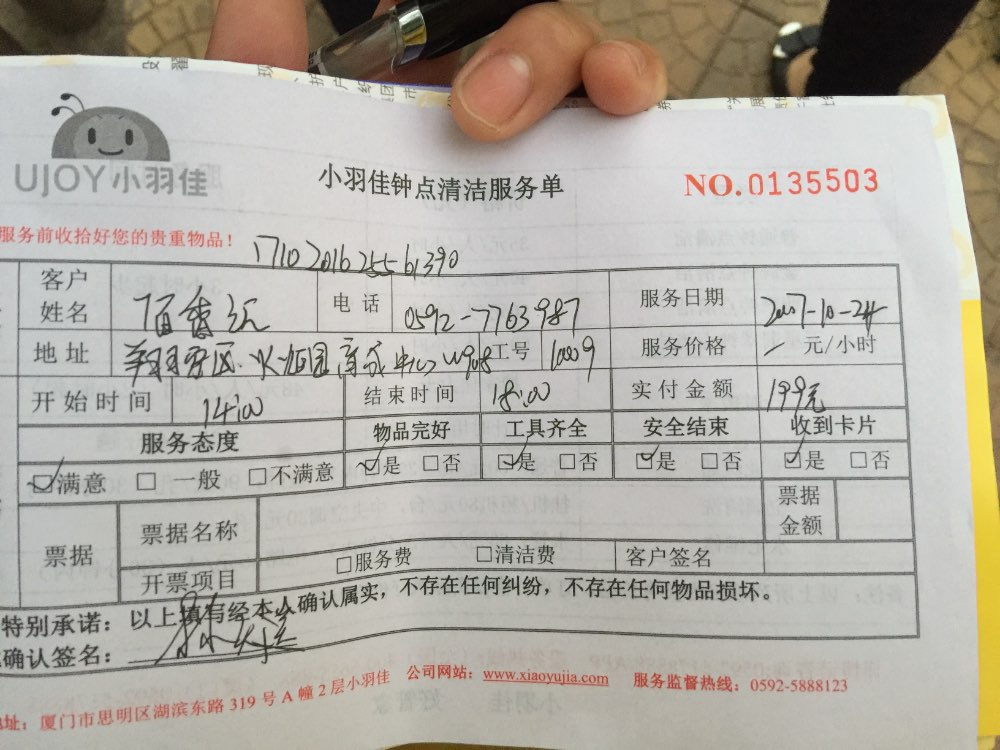 UJOY小羽佳
小羽佳钟点清洁服务单
NO.0135503
服务前收拾好您的贵重物品!
1710201625561390
客户姓名
电话 0592-7763987
服务日期 2007-10-24
地址
工号 10009
服务价格 元/小时
开始时间 14:00
结束时间 18:00
实付金额 199元
服务态度 物品完好 工具齐全 安全结束 收到卡片
满意 一般 不满意 是 否 是 否 是 否 是 否
票据 票据名称 票据金额
开票项目 服务费 清洁费 客户签名
特别承诺:以上填写经本人确认属实,不存在任何纠纷,不存在任何物品损坏。
确认签名:
址:厦门市思明区湖滨东路319号A幢2层小羽佳 公司网站:www.xiaoyujia.com 服务监督热线:0592-5888123